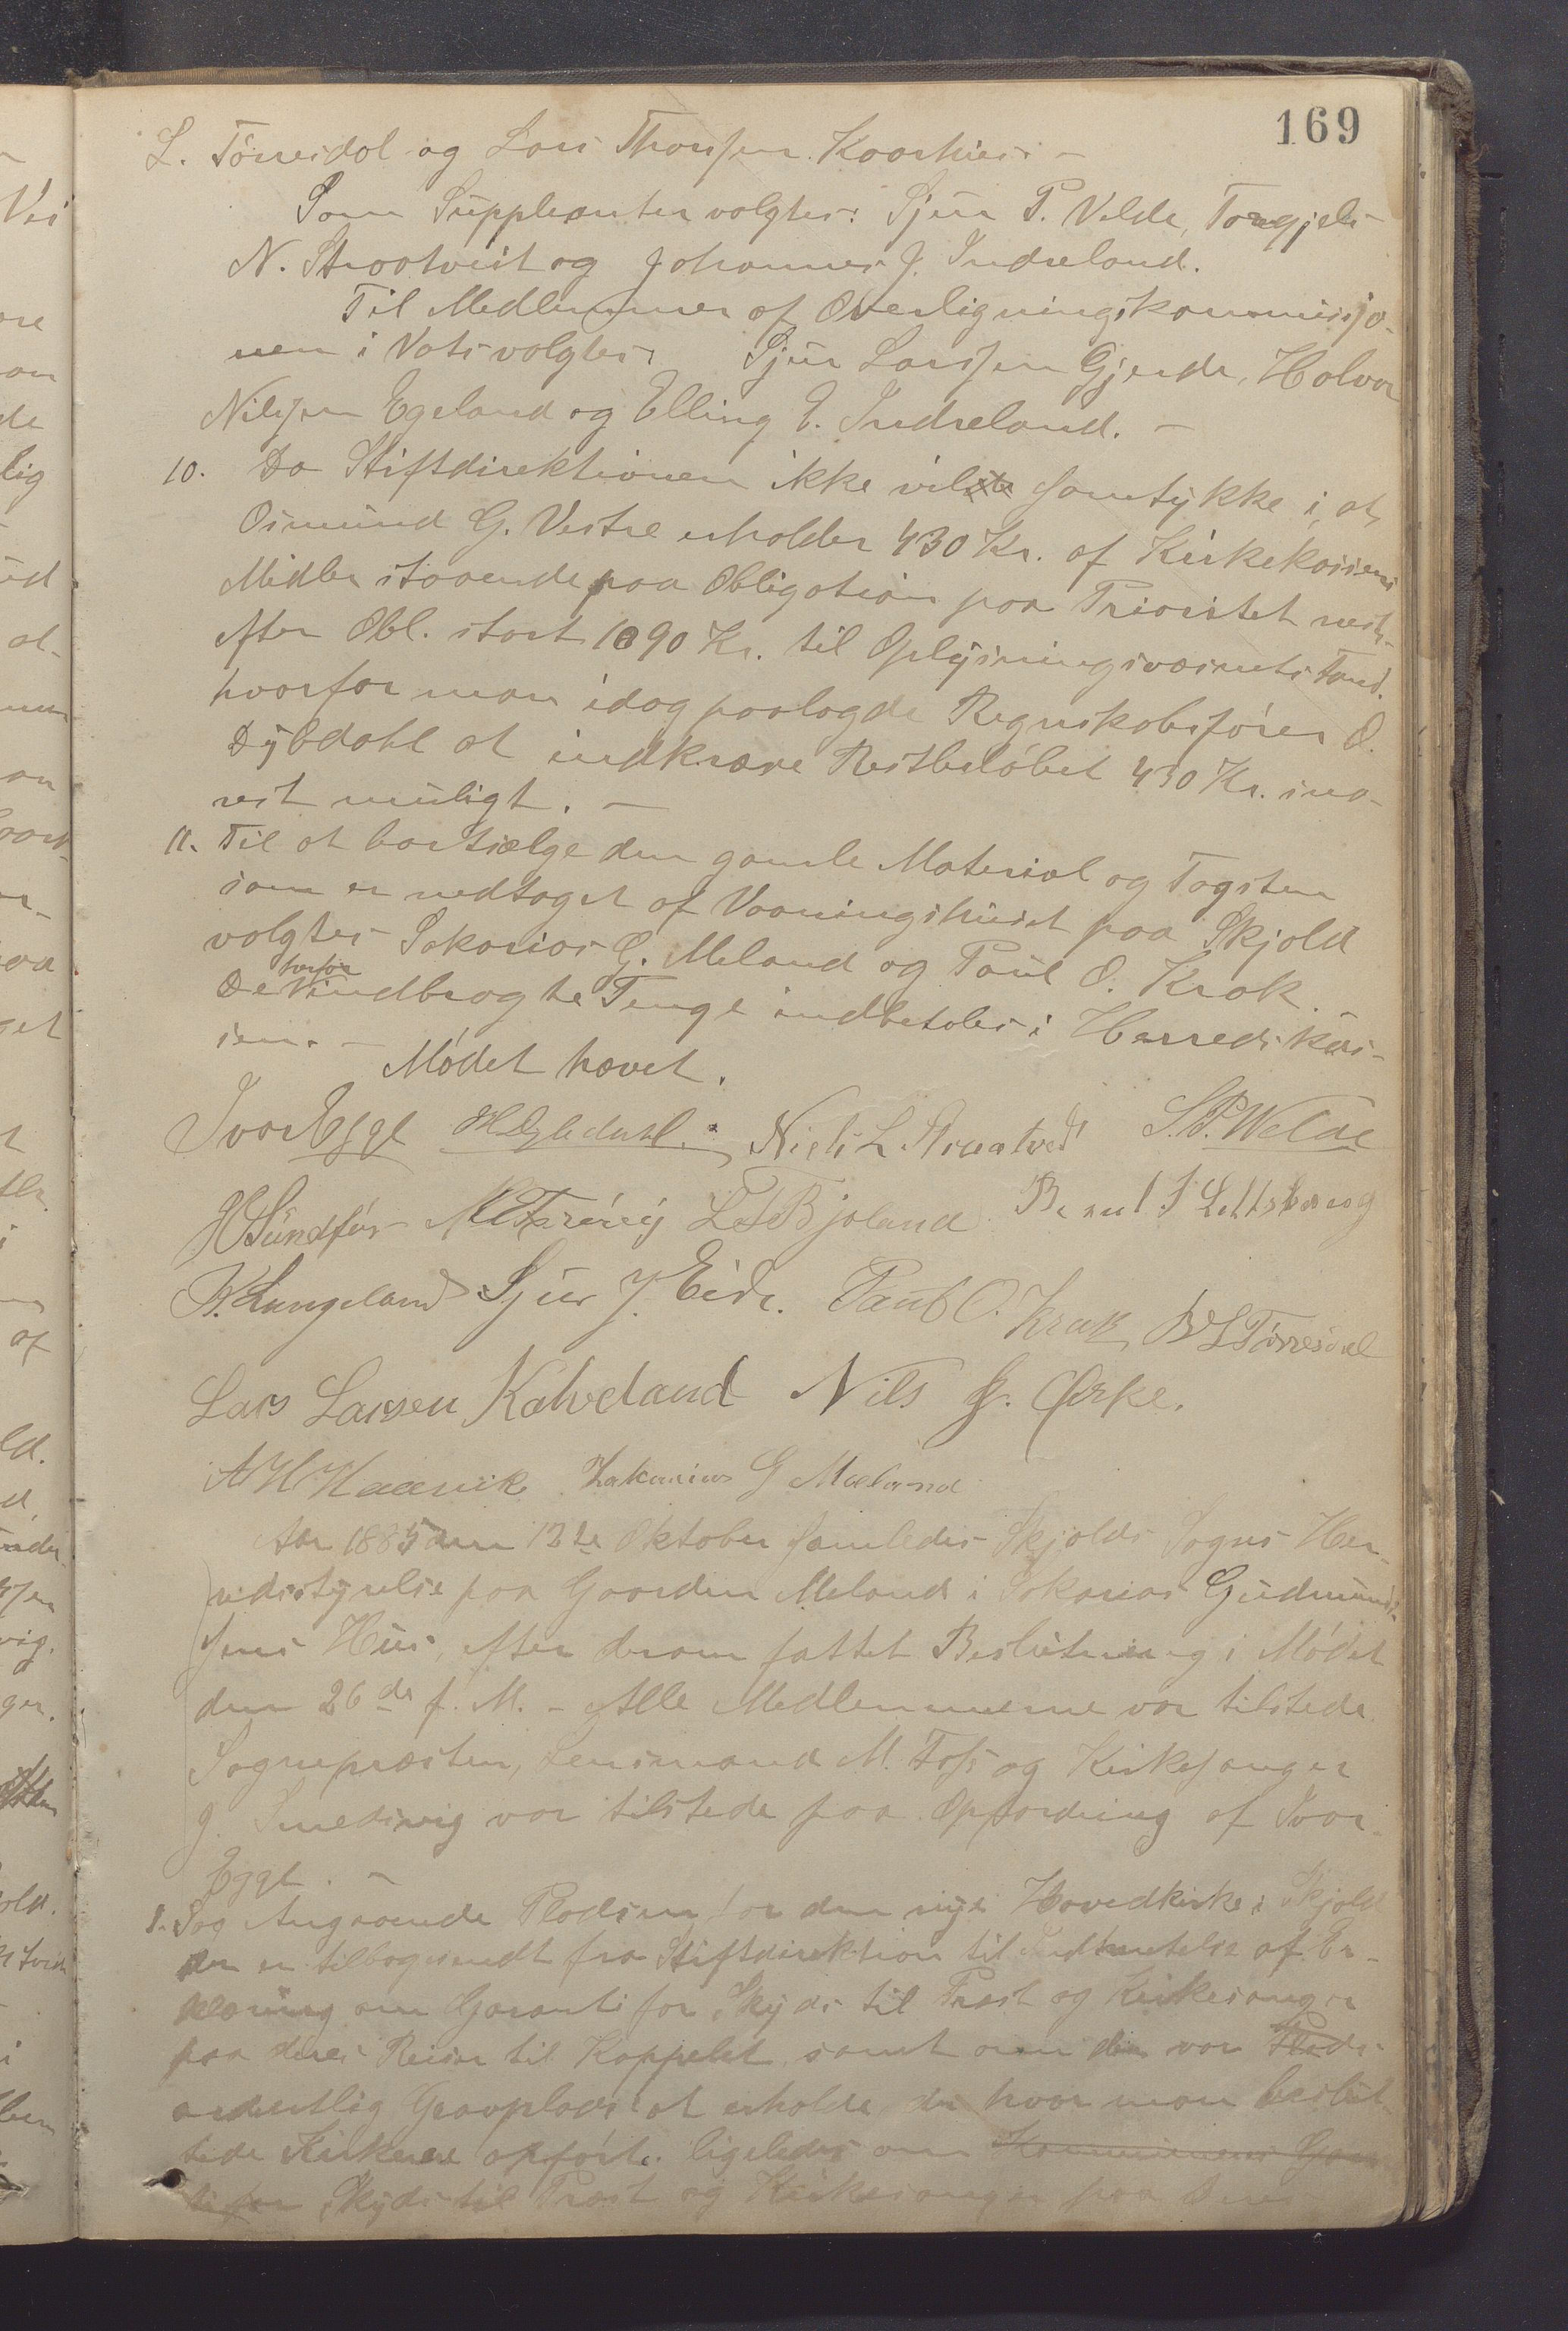 169
L. Törresdal og Lars Thorsen Kaarhus. –
Som Suppleanter valgtes: Sjur P. Velde, Torgjels
N. Straatveit og Johannes J. Indreland.
Til Medlemmer af Overligningskommissjo-
nen i Vats valgtes: Sjur Larssen Gjerde, Halvor
Nilssen Egeland og Elling E. Indreland. –
10. Da Stiftdirektionen ikke vil samtykke i, at
Osmund G. Vestre erholder 430 Kr. af Kirkekassens
Midler staaende paa Obligation paa Prioritet næst-
efter Obl. stort 1090 Kr. til Oplysningsvæsnets Fond.
hvorfor man idag paalagde Regnskabsfører O.
Dybdahl at indkræve Restbeløbet 430 Kr. sna-
rest muligt. –
11. Til at bortsælge den gamle Material og Tagsten
som er nedtaget af Vaaningshuset paa Skjold
valgtes Sakarias G. Meland og Paul O. Krak
De herfor indbragte Penge indbetales i Herredskas-
sen. –
Mödet hævet.
Ivar Egge Niels L Straatveit S. P. Welde
H Sundför L T Bjoland Bernt
K. Langeland Sjur J. Eide. Paul O. Krak B L Törresdal
Lars Larsen Kalveland Nils G. Ørke.
A H Haavik Zakarias G Mæland
Aar 1885 den 12te Oktober samledes Skjolds Sogns Her-
redsstyrelse paa Gaarden Meland i Sakarias Gudmund-
sens Hus, efter derom fattet Beslutning i Mödet
den 26de f. M. – Alle Medlemmerne var tilstede.
Sognepræsten, Lensmand M. Foss og Kirkesanger
J. Smedsvig var tilstede paa Opfordring af Ivar
Egge. –
1. Sag Angaaende Pladsen for den nye Hovedkirke i Skjold
der er tilbagesendt fra Stiftdirektion til Indhentelse af Er-
klæring om Garanti for Skyds til Præst og Kirkesanger
paa deres Reiser til Kappelet samt om der var
ordentlig Gravplads at erholde der hvor man beslut-
tede Kirkerne opfört. ligeledes om Kommunens Garan
ti for Skyds til Præst og Kirkesanger paa deres